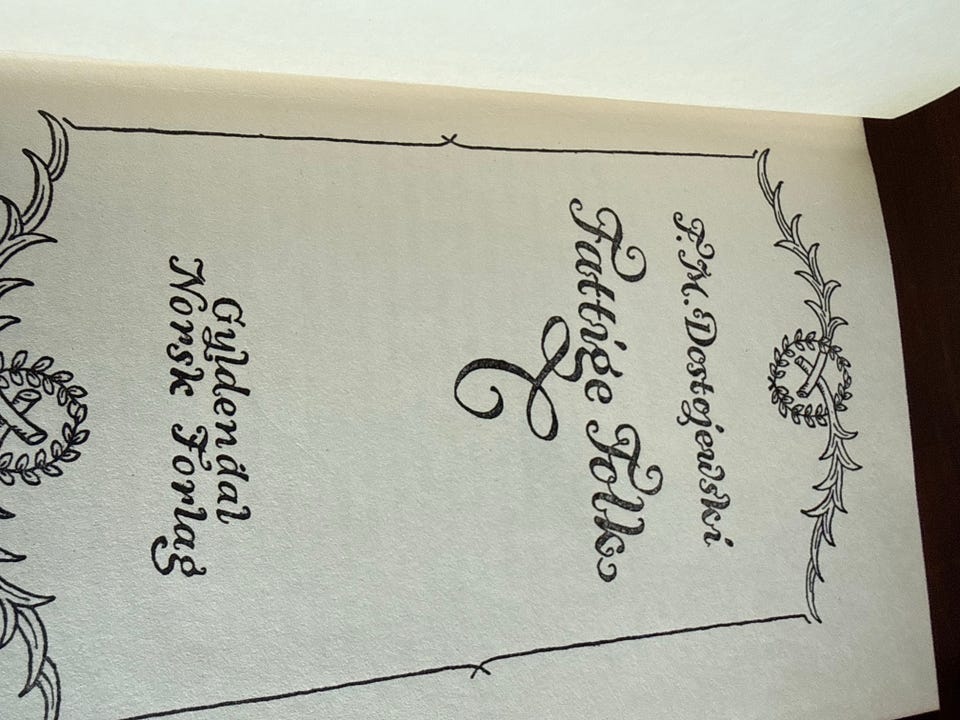 F. M. Dostojewski
Fattige Folk
Gyldendal
Norsk Forlag